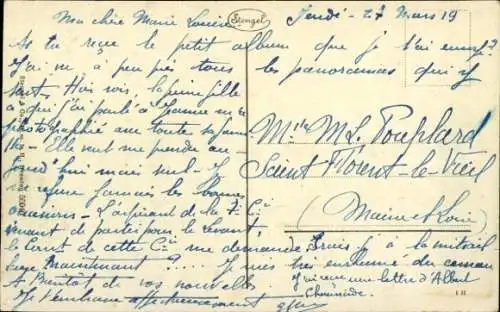 Jeudi - 27 Mars 19
Ma chère Marie Louise
Stengel
As tu reçu le petit album que je t'ai envoyé?
J'ai vu à peu près tous les panoramas qui y
sont. Hier soir, la jeune fille
à qui j'ai parlé à Jeanne m'a
photographié avec toute sa famil
le - Elle veut me prendre au-
jourd'hui mais seul - Je
ne refuse jamais les bonnes
occasions - L'aspirant de la 7e Cie
venant de partir pour le
le Const de cette Cie me demande
Maintenant ?
A Bientôt de vos nouvelles
Je t'embrasse affectueusement
Mlle ML. Pouplard
Saint Florent-le-Vieil
(Maine et Loire)
je à la mitrail
Je suis très enrhumé du cerveau
J'ai reçu une lettre d'Albert